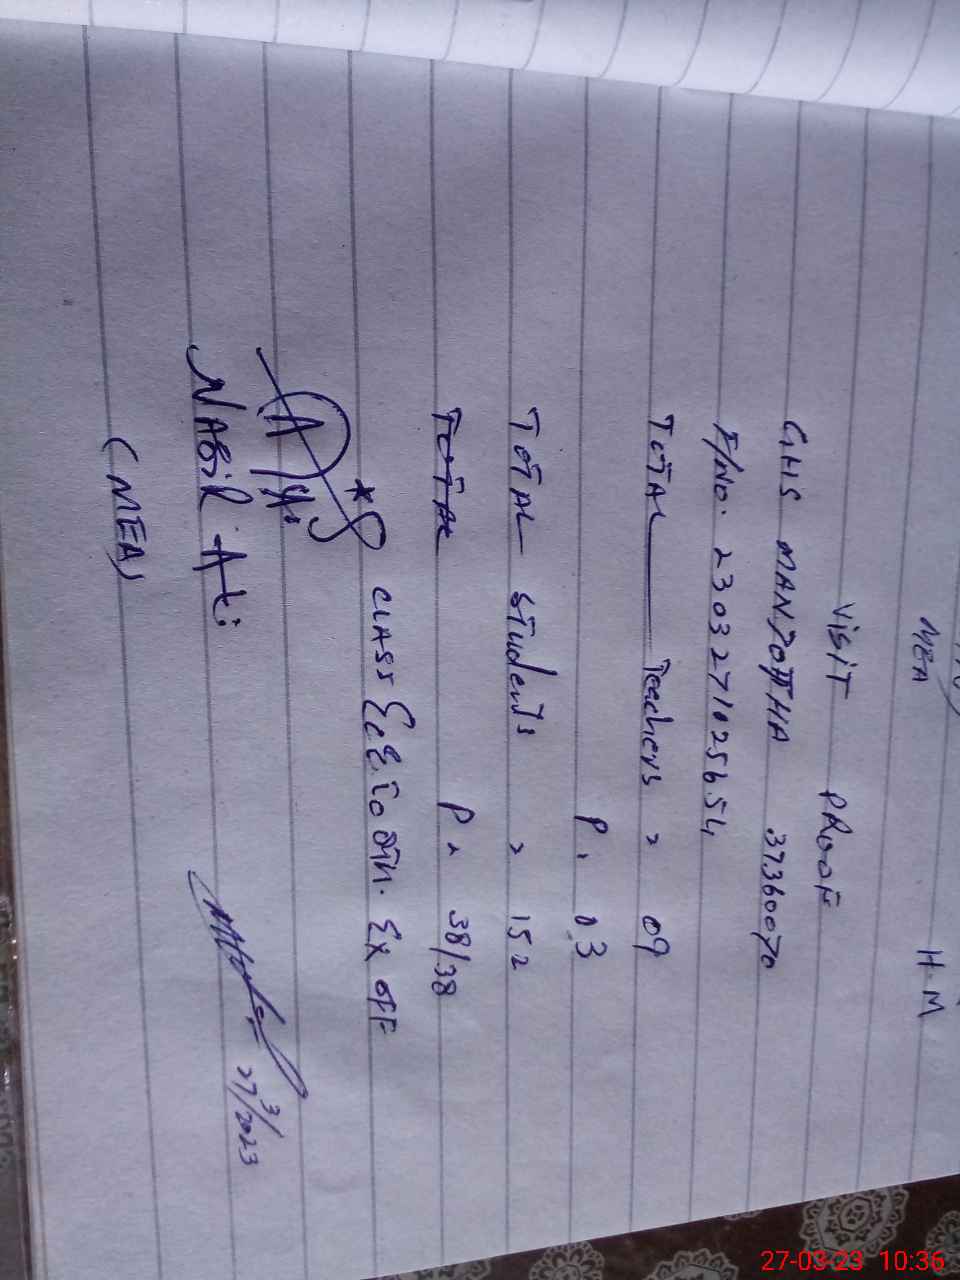 MEA H.M
VISIT PROOF
GHS MANJOTHA 37360070
F/No. 2303271025654
TOTAL Teachers > 09
P. 03
TOTAL Students > 152
TOTAL P. 38/38
* CLASS ECE TO 8TH. EX OFF
NABIL At:
(MEA)
27/3/2023
27-03-23 10:36